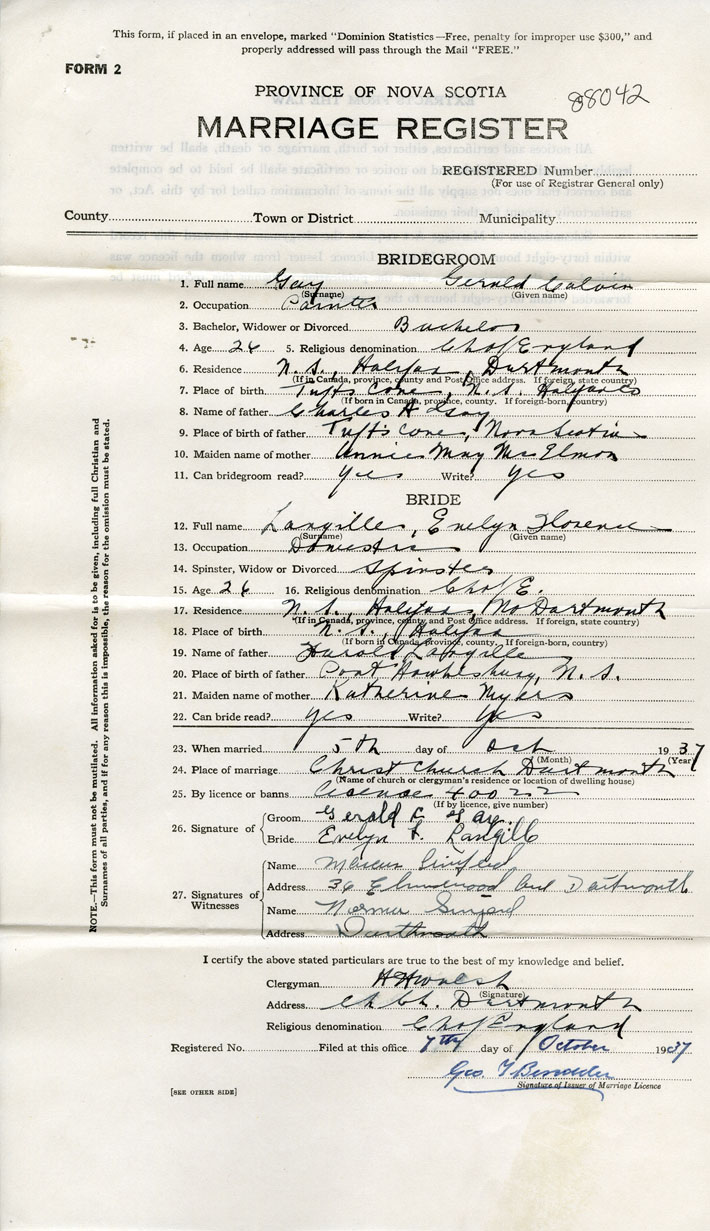 This form, if placed in an envelope, marked "Dominion Statistics—Free, penalty for improper use $300," and
properly addressed will pass through the Mail "FREE."
FORM 2
PROVINCE OF NOVA SCOTIA
88042
MARRIAGE REGISTER
REGISTERED Number
(For use of Registrar General only)
County Town or District Municipality
BRIDEGROOM
1. Full name Gay Gerald Calvin
(Surname) (Given name)
2. Occupation Painter
3. Bachelor, Widower or Divorced Bachelor
4. Age 26 5. Religious denomination Ch of England
6. Residence N. S., Halifax, Dartmouth
(If in Canada, province, county and Post Office address. If foreign, state country)
7. Place of birth Tufts Cove, N. S. Halifax Co
(If born in Canada, province, county. If foreign-born, country)
8. Name of father Charles H Gay
9. Place of birth of father Tufts Cove, Nova Scotia
10. Maiden name of mother Annie May McElmon
11. Can bridegroom read? Yes Write? Yes
BRIDE
12. Full name Langille, Evelyn Florence
(Surname) (Given name)
13. Occupation Domestic
14. Spinster, Widow or Divorced Spinster
15. Age 26 16. Religious denomination Ch of E.
17. Residence N. S., Halifax, No Dartmouth
(If in Canada, province, county and Post Office address. If foreign, state country)
18. Place of birth N. S., Halifax
(If born in Canada, province, county. If foreign-born, country)
19. Name of father Harold Langille
20. Place of birth of father Port Hawkesbury, N. S.
21. Maiden name of mother Katherine Myers
22. Can bride read? Yes Write? Yes
23. When married 5th day of Oct 1937
(Month) (Year)
24. Place of marriage Christ Church Dartmouth
(Name of church or clergyman's residence or location of dwelling house)
25. By licence or banns Licence 40022
(If by licence, give number)
26. Signature of Groom Gerald C Gay.
Bride Evelyn F. Langille
27. Signatures of Witnesses
Name Marcus
Address 36 Elmwood Ave Dartmouth
Name Norma
Address Dartmouth
I certify the above stated particulars are true to the best of my knowledge and belief.
Clergyman H H Walsh
(Signature)
Address Ch Ch. Dartmouth
Religious denomination Ch of England
Registered No. Filed at this office 7th day of October 1937
Geo.
Signature of Issuer of Marriage Licence
[SEE OTHER SIDE]
NOTE.—This form must not be mutilated. All information asked for is to be given, including full Christian and
Surnames of all parties, and if for any reason this is impossible, the reason for the omission must be stated.